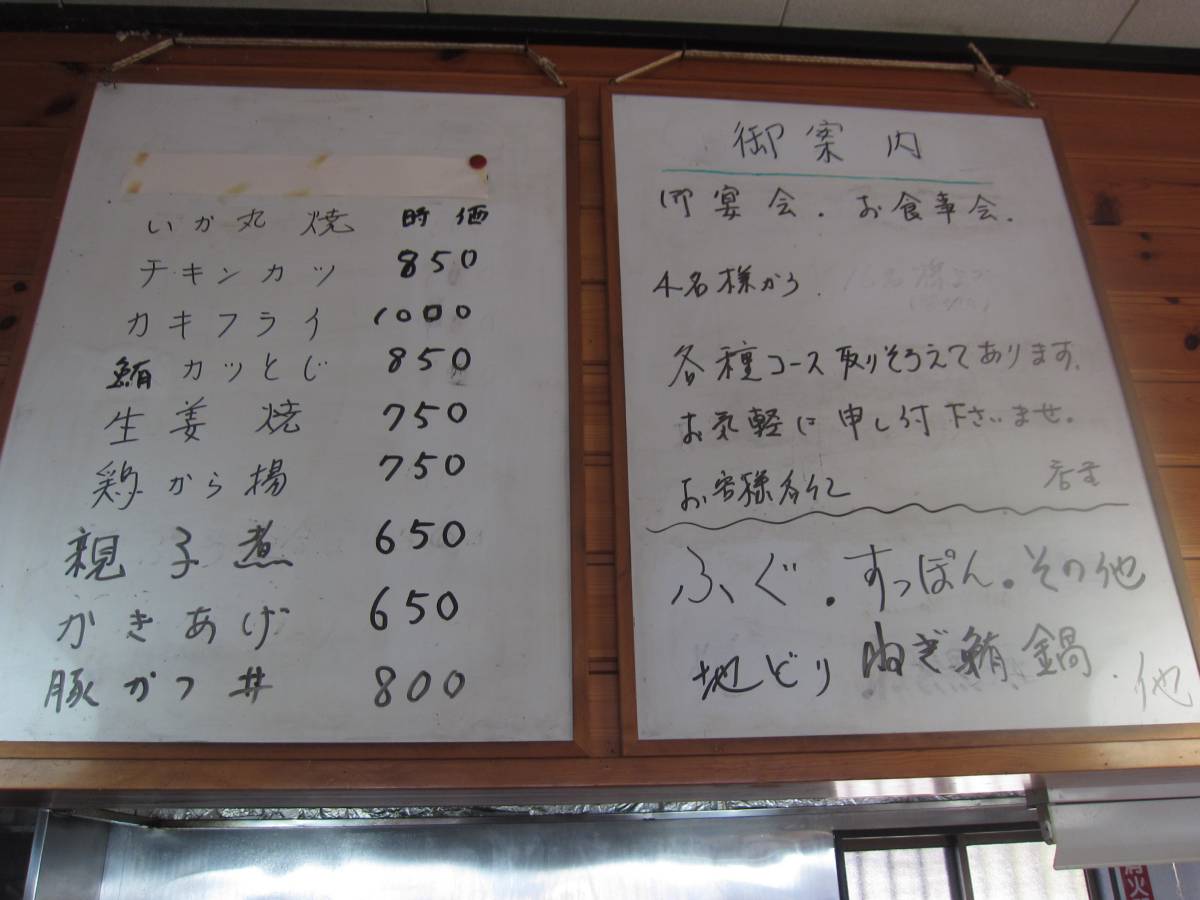 いか丸焼 時価
チキンカツ 850
カキフライ 1000
鮪カツとじ 850
生姜焼 750
鶏から揚 750
親子煮 650
かきあげ 650
豚かつ丼 800
御案内
御宴会.お食事会.
4名様から.
各種コース取りそろえてあります.
お気軽に申し付下さいませ.
お客様各位 店主
ふぐ.すっぽん.その他
地どり ねぎ鮪鍋.他
消火